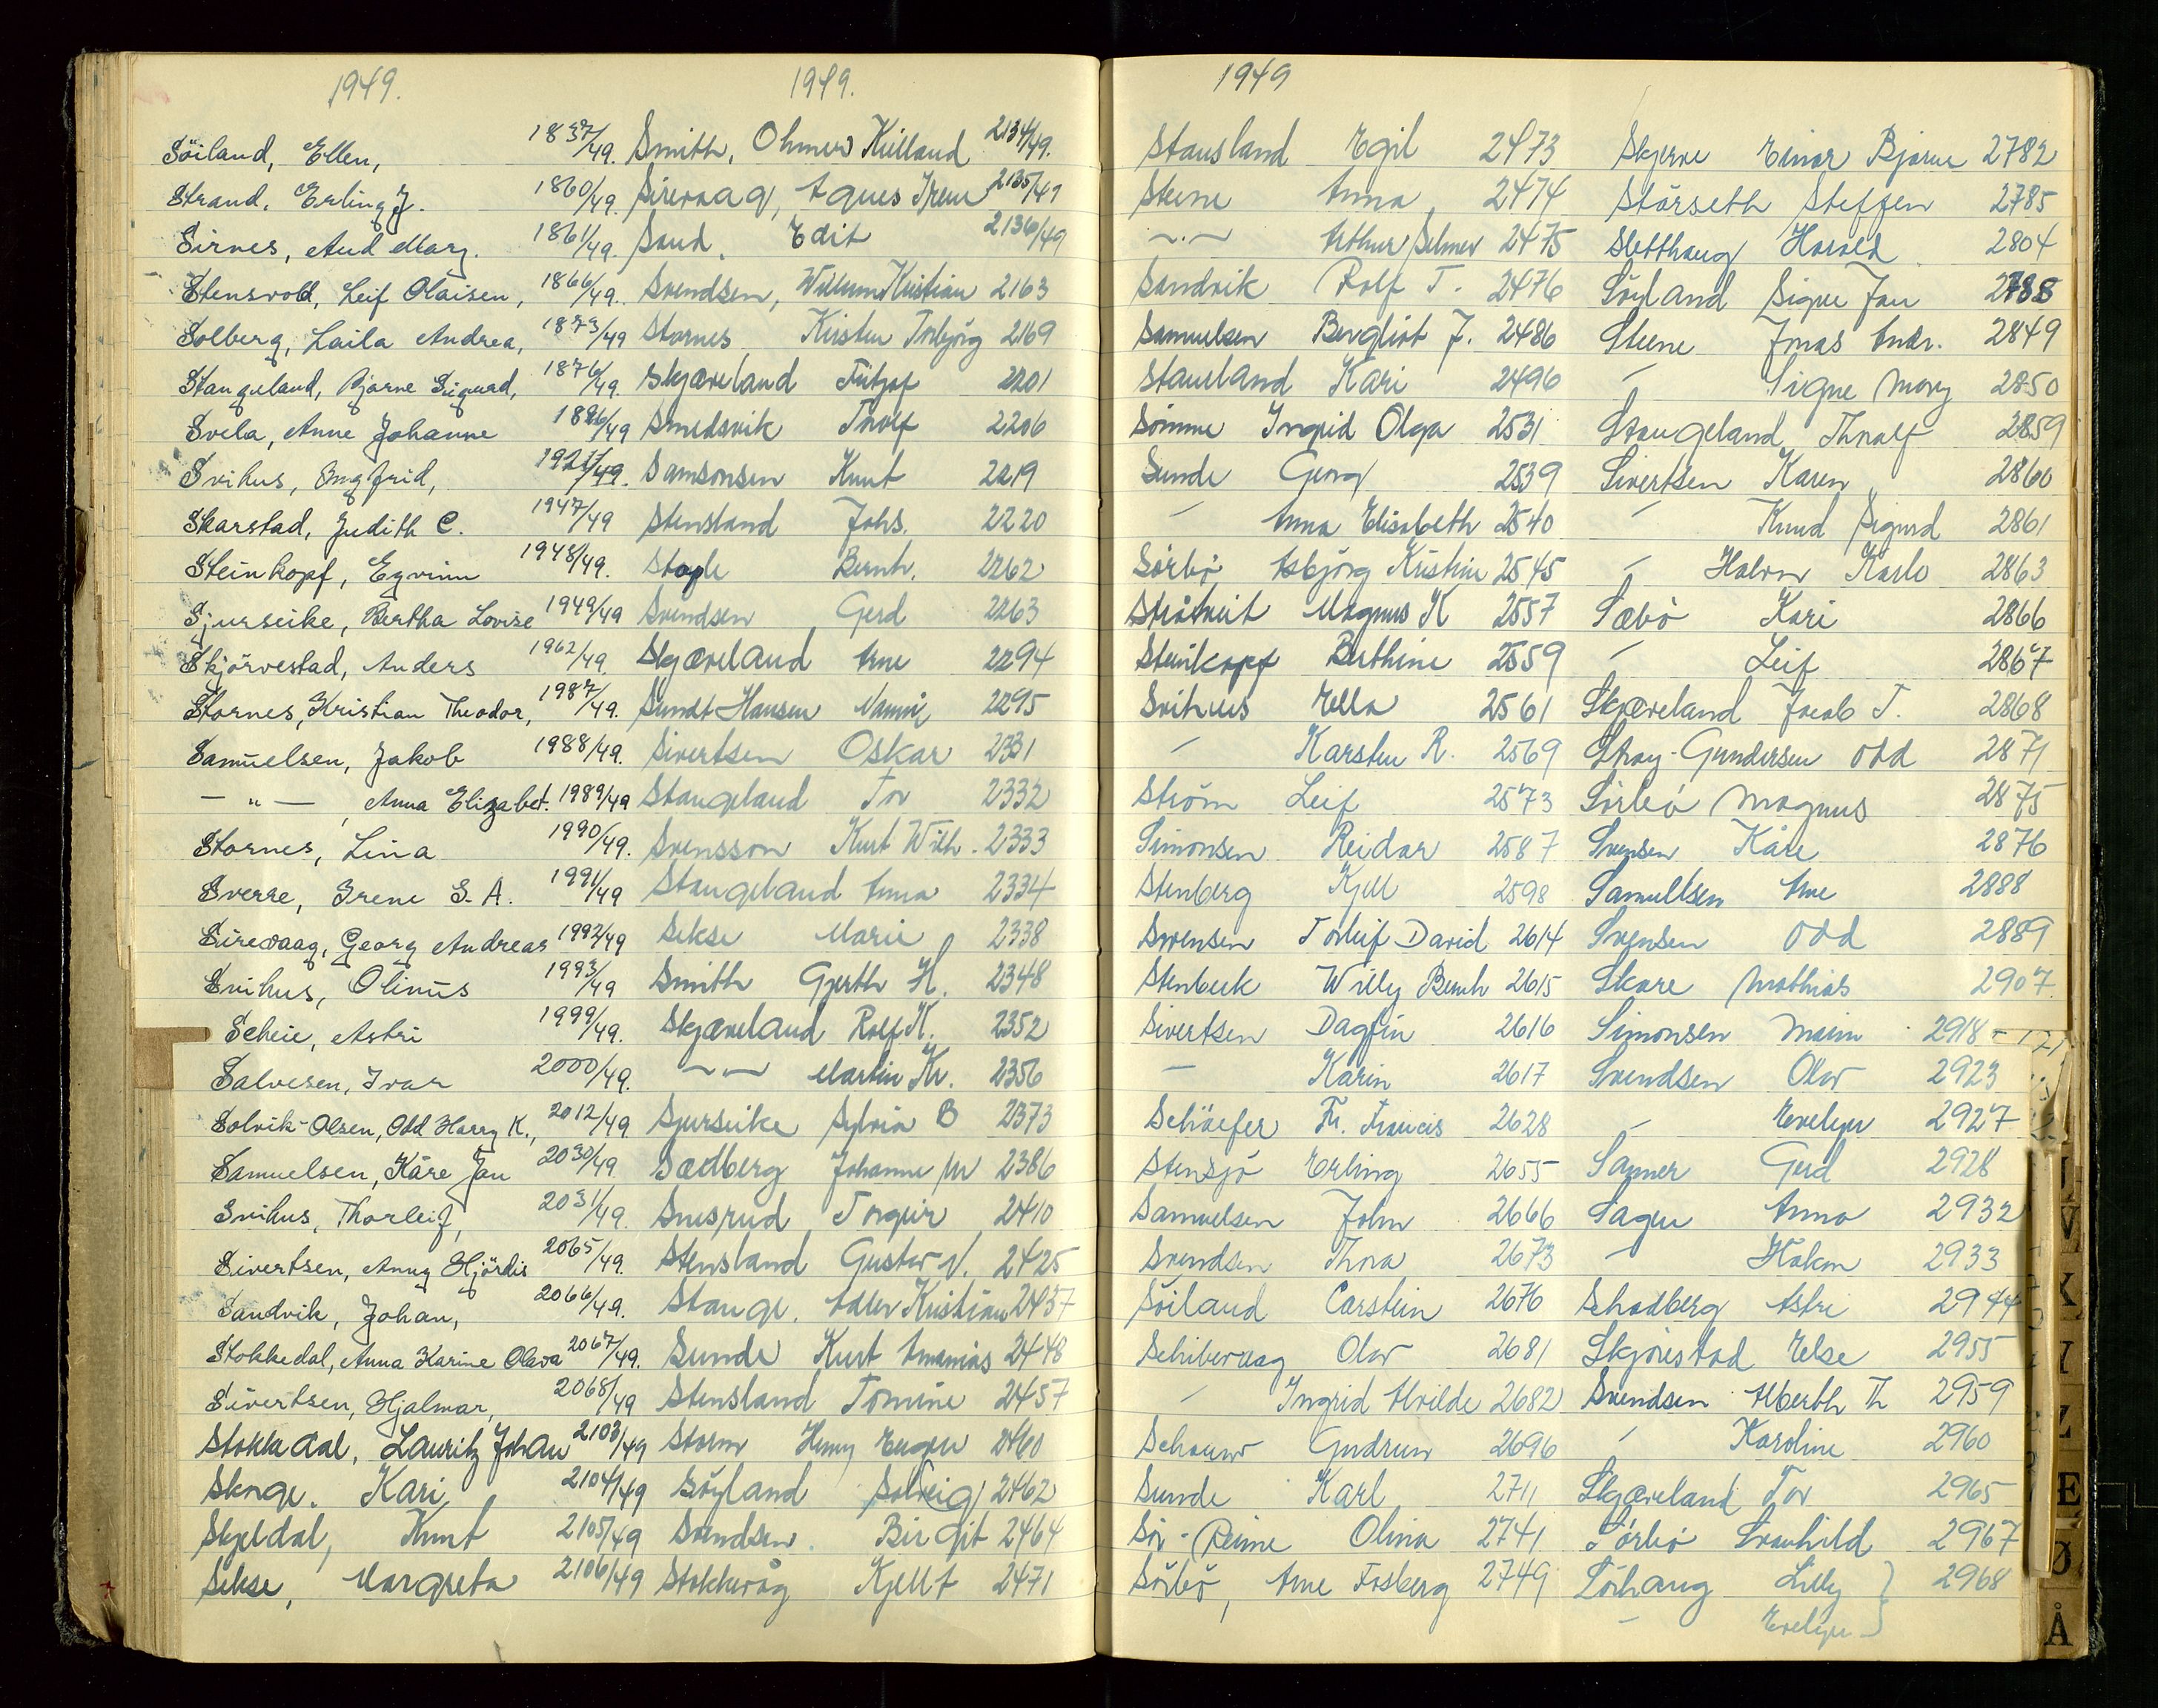 1949.
Söiland, Ellen, 1837/49.
Strand, Erling J. 1860/49.
Sirnes, Aud Marg. 1861/49.
Stensvold, Leif Olaisen, 1866/49.
Solberg, Laila Andrea, 1873/49
Stangeland, Bjarne Sigurd, 1876/49.
Svela, Anne Johanne 1886/49
Svihus, Ingfrid, 1921/49.
Skarstad, Judith C. 1947/49
Steinkopf, Egvinn 1948/49.
Sjurseike, Bertha Lovise 1949/49
Skjörvestad, Anders 1962/49.
Stornes, Kristian Theodor, 1987/49.
Samuelsen, Jakob 1988/49.
— " — , Anna Elizabet. 1989/49
Stornes, Lina 1990/49.
Sverre, Irene S. A. 1991/49
Sirevaag, Georg Andreas 1992/49
Svihus, Olinus 1993/49
Scheie, Astri 1999/49.
Salvesen, Ivar 2000/49.
Solvik-Olsen, Odd Harry K., 2012/49
Samuelsen, Kåre Jan 2030/49.
Svihus, Thorleif, 2031/49.
Sivertsen, Anny Hjördis 2065/49.
Sandvik, Johan, 2066/49.
Stokkedal, Anna Karine Olava 2067/49.
Sivertsen, Hjalmar, 2068/49
Stokkedal, Lauritz Johan 2103/49
Skage. Kari 2104/49
Skjeldal, Knut 2105/49
Sekse, Margreta 2106/49
1949.
Smith, Ohmer Kielland 2134/49.
Sirevaag, Agnes Irene 2135/49
Sand, Edit 2136/49
Svendsen, Willum Kristian 2163
Stornes Kirsten Torbjörg 2169
Skjæveland Fritjof 2201
Smedsvik Torolf 2206
Samsonsen Knut 2219
Stensland Johs. 2220
Stople Bernh. 2262
Svendsen Gerd 2263
Skjæveland Arne 2294
Sundt Hansen Nanni 2295
Sivertsen Oskar 2331
Stangeland Tor 2332
Svensson Kurt Wilh. 2333
Stangeland Anna 2334
Sekse Marie 2338
Smith Gjerth H. 2348
Skjæveland Rolf K. 2352
—"— Martin Kr. 2356
Sjurseike Sylvia B 2373
Sædberg Johanne M 2386
Snesrud Torgeir 2410
Stensland Gustav N. 2425
Stange. Adler Kristian 2437
Sunde Kurt Amanias 2448
Stensland Tomine 2457
Storm Henny Eugen 2460
Söyland Solveig 2462
Svendsen Birgit 2464
Stokkevåg Kjell T 2471
1949
Stausland Egil 2473
Steene Anna 2474
—"— Arthur Selmer 2475
Sandvik Rolf T. 2476
Samuelsen Bergliot J. 2486
Stausland Kari 2496
Sömme Ingrid Olga 2531
Sunde Georg 2539
— Anna Elisabeth 2540
Sörbö Asbjörg Kristine 2545
Stråtveit Magnus K 2557
Steinkopf Berthine 2559
Svihus Ella 2561
— Karsten R. 2569
Ström Leif 2573
Simonsen Reidar 2587
Stenberg Kjell 2598
Sørensen Torleif David 2614
Stenbeck Willy Bernh 2615
Sivertsen Dagfin 2616
— Karin 2617
Schäefer Fr. Francis 2628
Stensjö Erling 2655
Samuelsen John 2666
Svendsen Thora 2673
Söiland Carstein 2676
Schibevaag Olav 2681
— Ingrid Alvilde 2682
Schouw Gudrun 2696
Sunde Karl 2711
Sör-Reime Olina 2741
Sörbö, Arne Fosberg 2749
Skjerve Einar Bjarne 2782
Störseth Steffen 2785
Sletthaug Harald 2804
Söyland Signe Jan 2788
Steene Jonas Andr. 2849
— Signe Mary 2850
Stangeland Thoralf 2859
Sivertsen Karen 2860
— Knud Sigurd 2861
— Halvor Karlo 2863
Sæbö Kari 2866
— Leif 2867
Skjæveland Jacob T. 2868
Stray-Gundersen Odd 2871
Sörbö Magnus 2875
Svensen Kåre 2876
Samuelsen Arne 2888
Svensen Odd 2889
Skare Mathias 2907
Simonsen 2918
Svendsen Olav 2923
— Evelyn 2927
Sayner Gerd 2928
Sagen Anna 2932
— Håkon 2933
Schadberg Astri 2944
Skjörestad Else 2955
Svendsen Alberth Th 2959
— Karoline 2960
Skjæveland Tor 2965
Sörbö Svanhild 2967
Sörhaug Lilly } 2968
— Evelyn }
V
K
Y
Z
Æ
Ø
Å